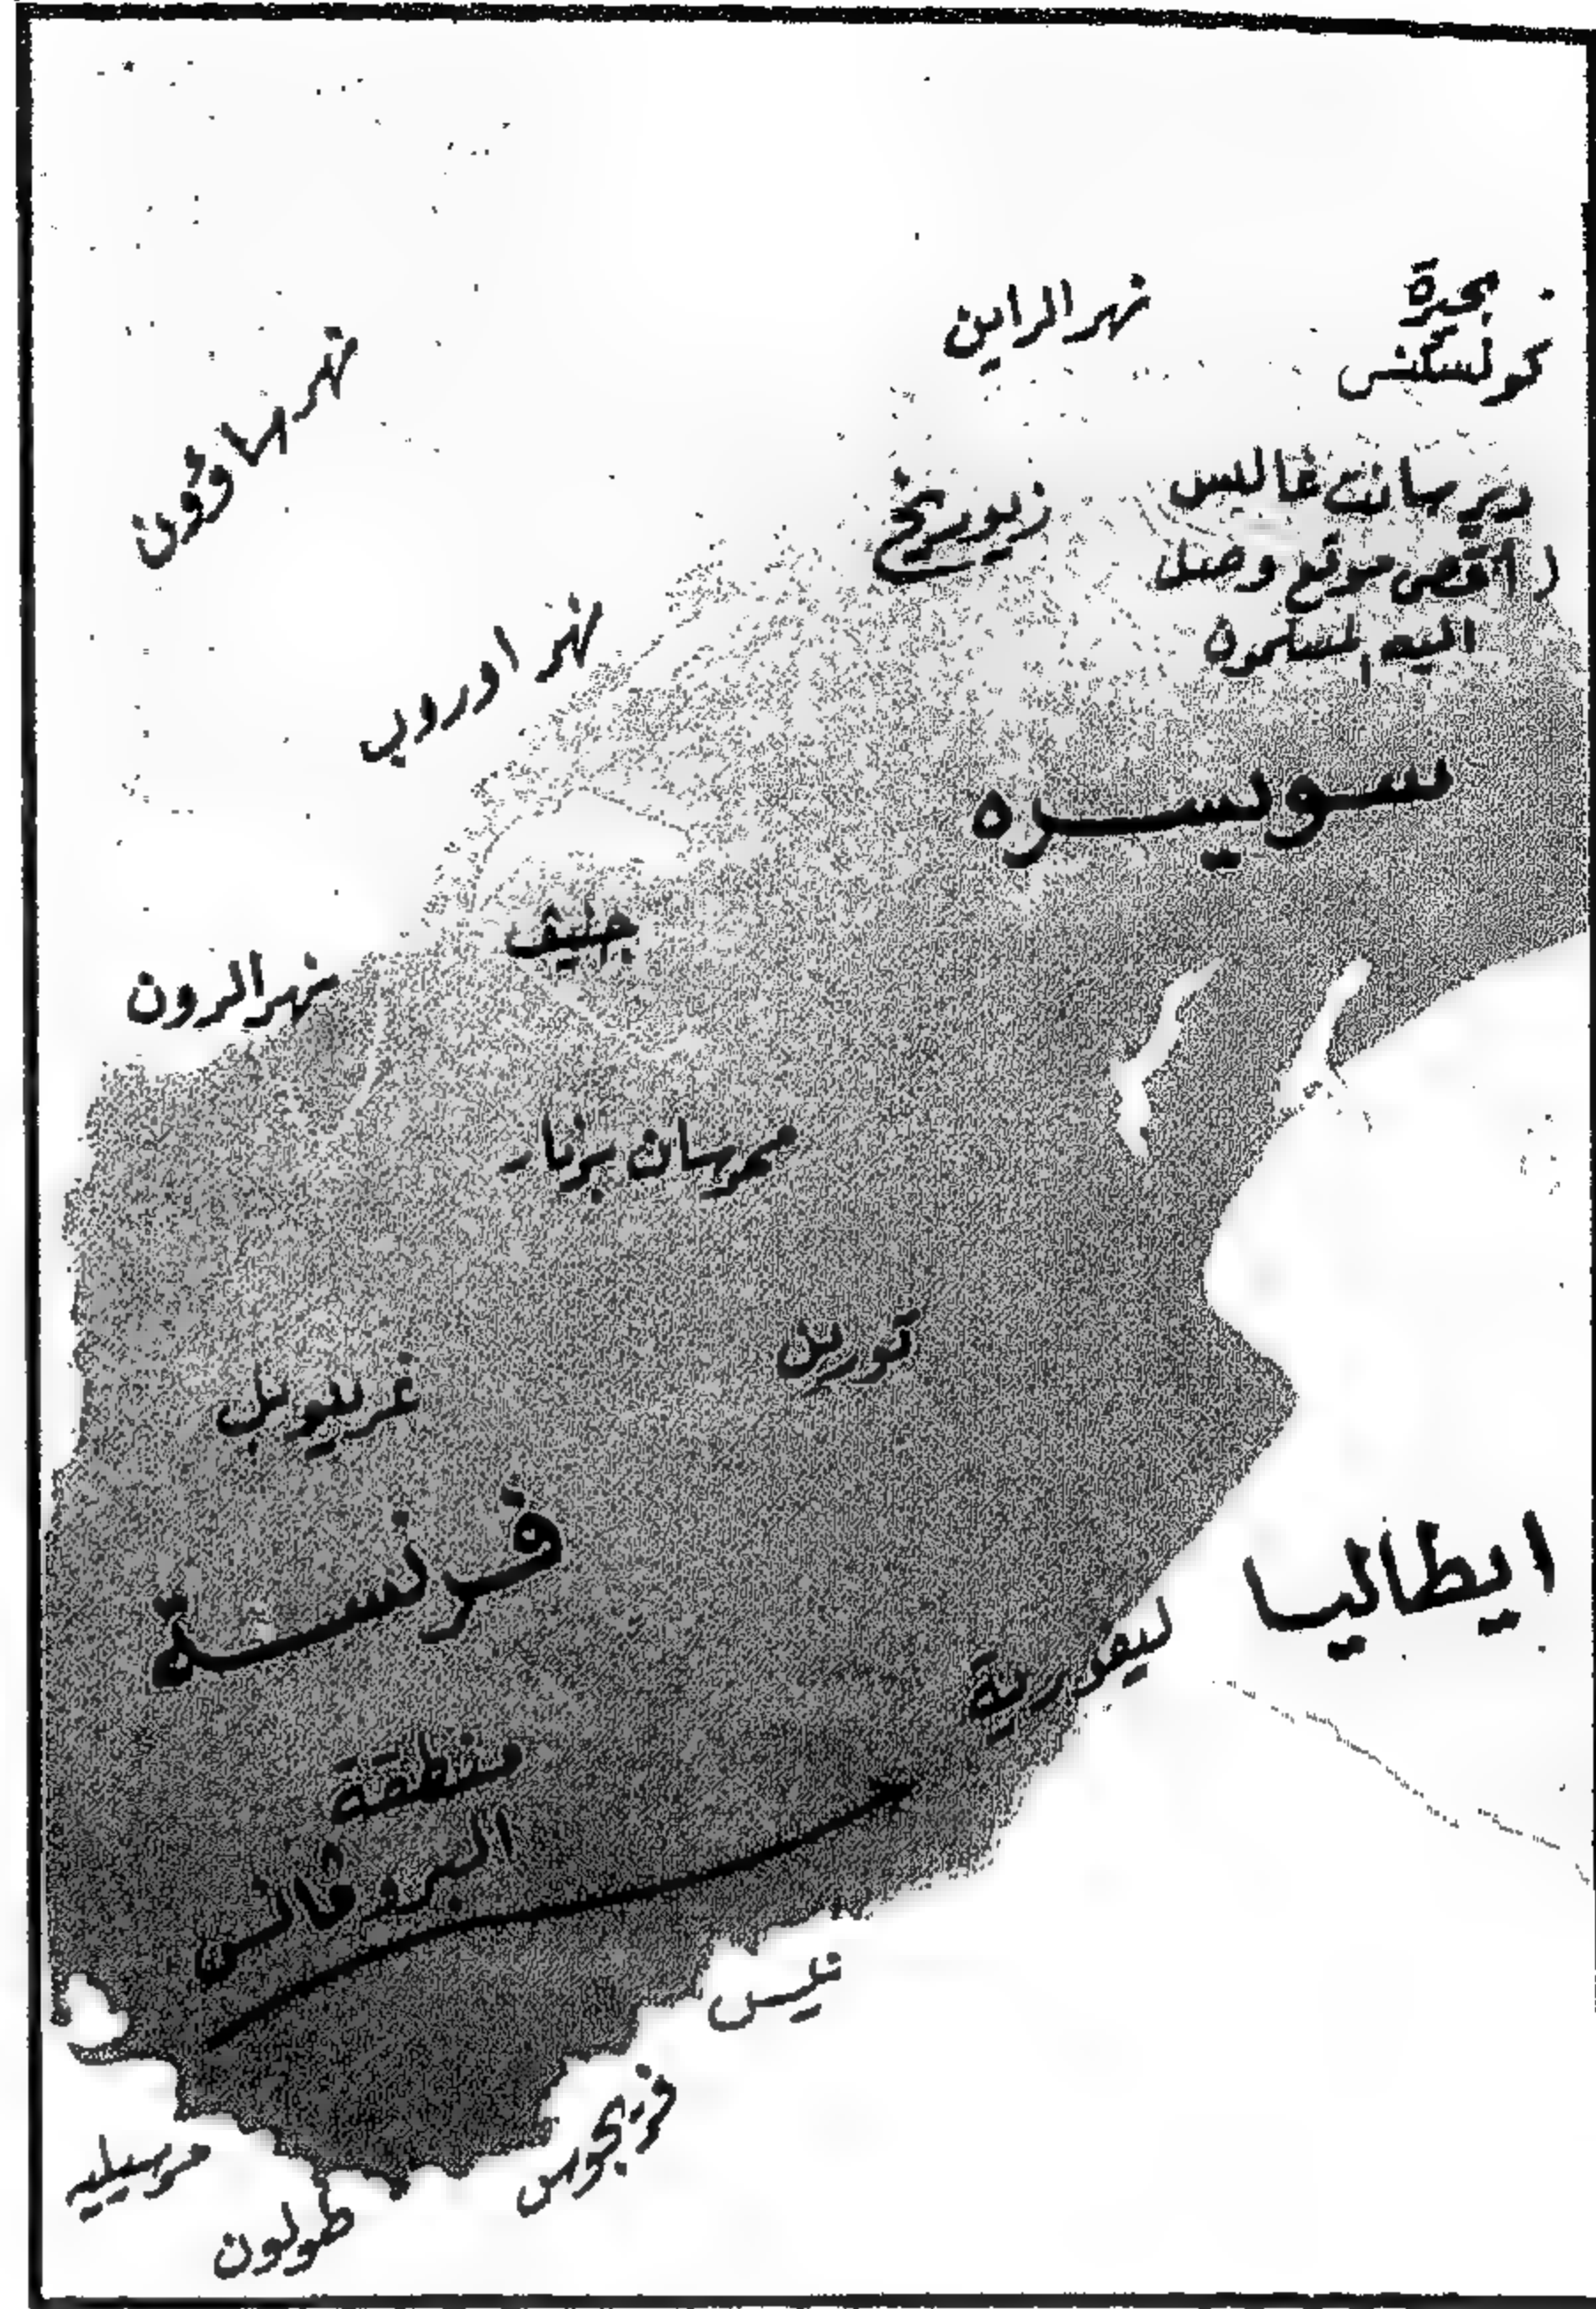 بحيرة
كونستكنس
نهر الراين
نهر ساؤون
دير سانت غالس
(أقصى موقع وصل
اليه المسلمون
زيوريخ
نهر اوروب
سويسره
جنيف
نهر الرون
ممر سان برنار
تورين
غرينوبل
فرنسة
ايطاليا
ليغورية
منطقة
البروفانس
نيس
فريجوس
مرسيليه
طولون